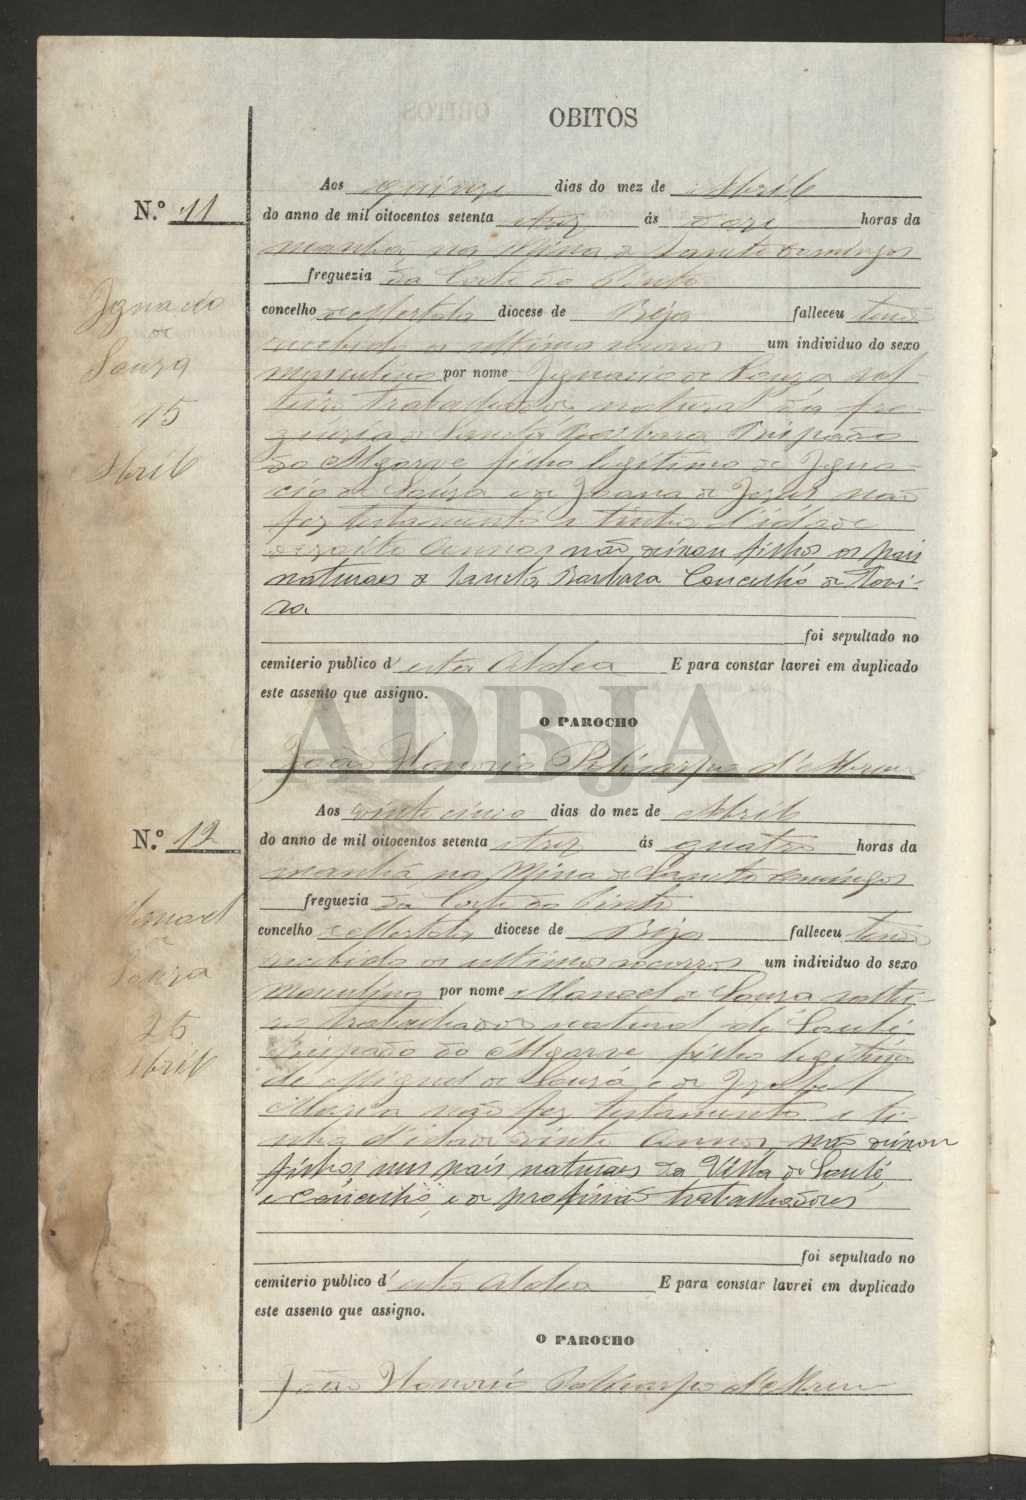 OBITOS
N.º 11
Ignacio
de
Souza
15
Abril
Aos quinze dias do mez de Abril
do anno de mil oitocentos setenta e trez ás doze horas da
manhã na Mina de Sancto Domingos
freguezia da Corte do Pinto
concelho de Mertola diocese de Beja falleceu tendo
recebido os ultimos socorros um individuo do sexo
masculino por nome Ignacio de Souza sol-
teiro trabalhador, natural da fre-
guezia de Sancta Barbara Bispado
do Algarve filho legitimo de Igna-
cio de Souza e de Joana de Jezus não
fez testamento e tinha d'idade
dezoito annos, não deixou filhos os pais
naturaes de Sancta Barbara Concelho de
foi sepultado no
cemiterio publico d'esta Aldea E para constar lavrei em duplicado
este assento que assigno.
ADBJA
O PAROCHO
João Honorio Policarpo d'Abreu
N.º 12
Manoel
de
Souza
25
Abril
Aos vinte cinco dias do mez de Abril
do anno de mil oitocentos setenta e trez ás quatro horas da
manhã na Mina de Sancto Domingos
freguezia da Corte do Pinto
concelho de Mertola diocese de Beja falleceu tendo
recebido os ultimos socorros um individuo do sexo
masculino por nome Manoel de Souza soltei-
ro, trabalhador natural de Loulé
Bispado do Algarve filho legitimo
de Miguel de Souza e de Izabel
Maria não fez testamento e ti-
nha d'idade vinte annos, não deixou
filhos seus pais naturaes da Villa de Loulé,
e concelho, e de profissão trabalhadores
foi sepultado no
cemiterio publico d'esta Aldea E para constar lavrei em duplicado
este assento que assigno.
O PAROCHO
João Honorio Policarpo d'Abreu